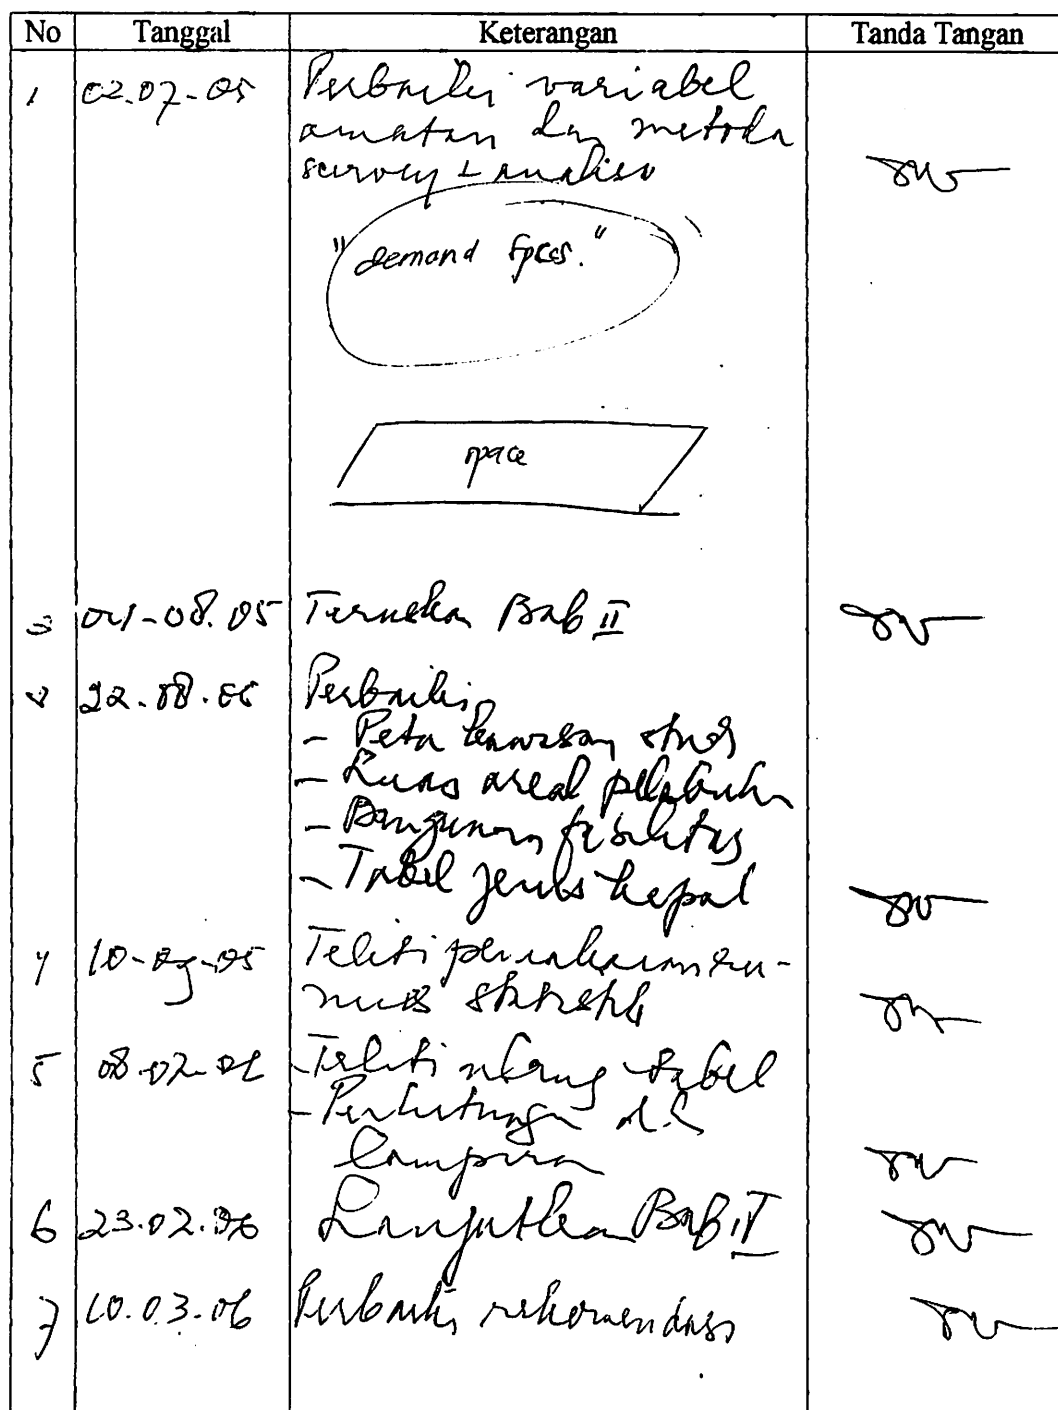 No Tanggal Keterangan Tanda Tangan
1 02.07-05 Perbaiki variabel
amatan dan metoda
survey + analisa
"demand spces."
space
3 01-08.05 Teruskan Bab II
22.08.05 Perbaiki
- Peta kawasan studi
- Luas areal pelabuhan
- Bangunan fasilitas
- Tabel jenis kapal
4 10-09-05 Teliti pemakaian ru-
mus statistik
5 08.02.06 - Teliti ulang tabel
- Perhitungan
lampiran
6 23.02.06 Lanjutkan Bab V
7 10.03.06 Perbaiki rekomendasi